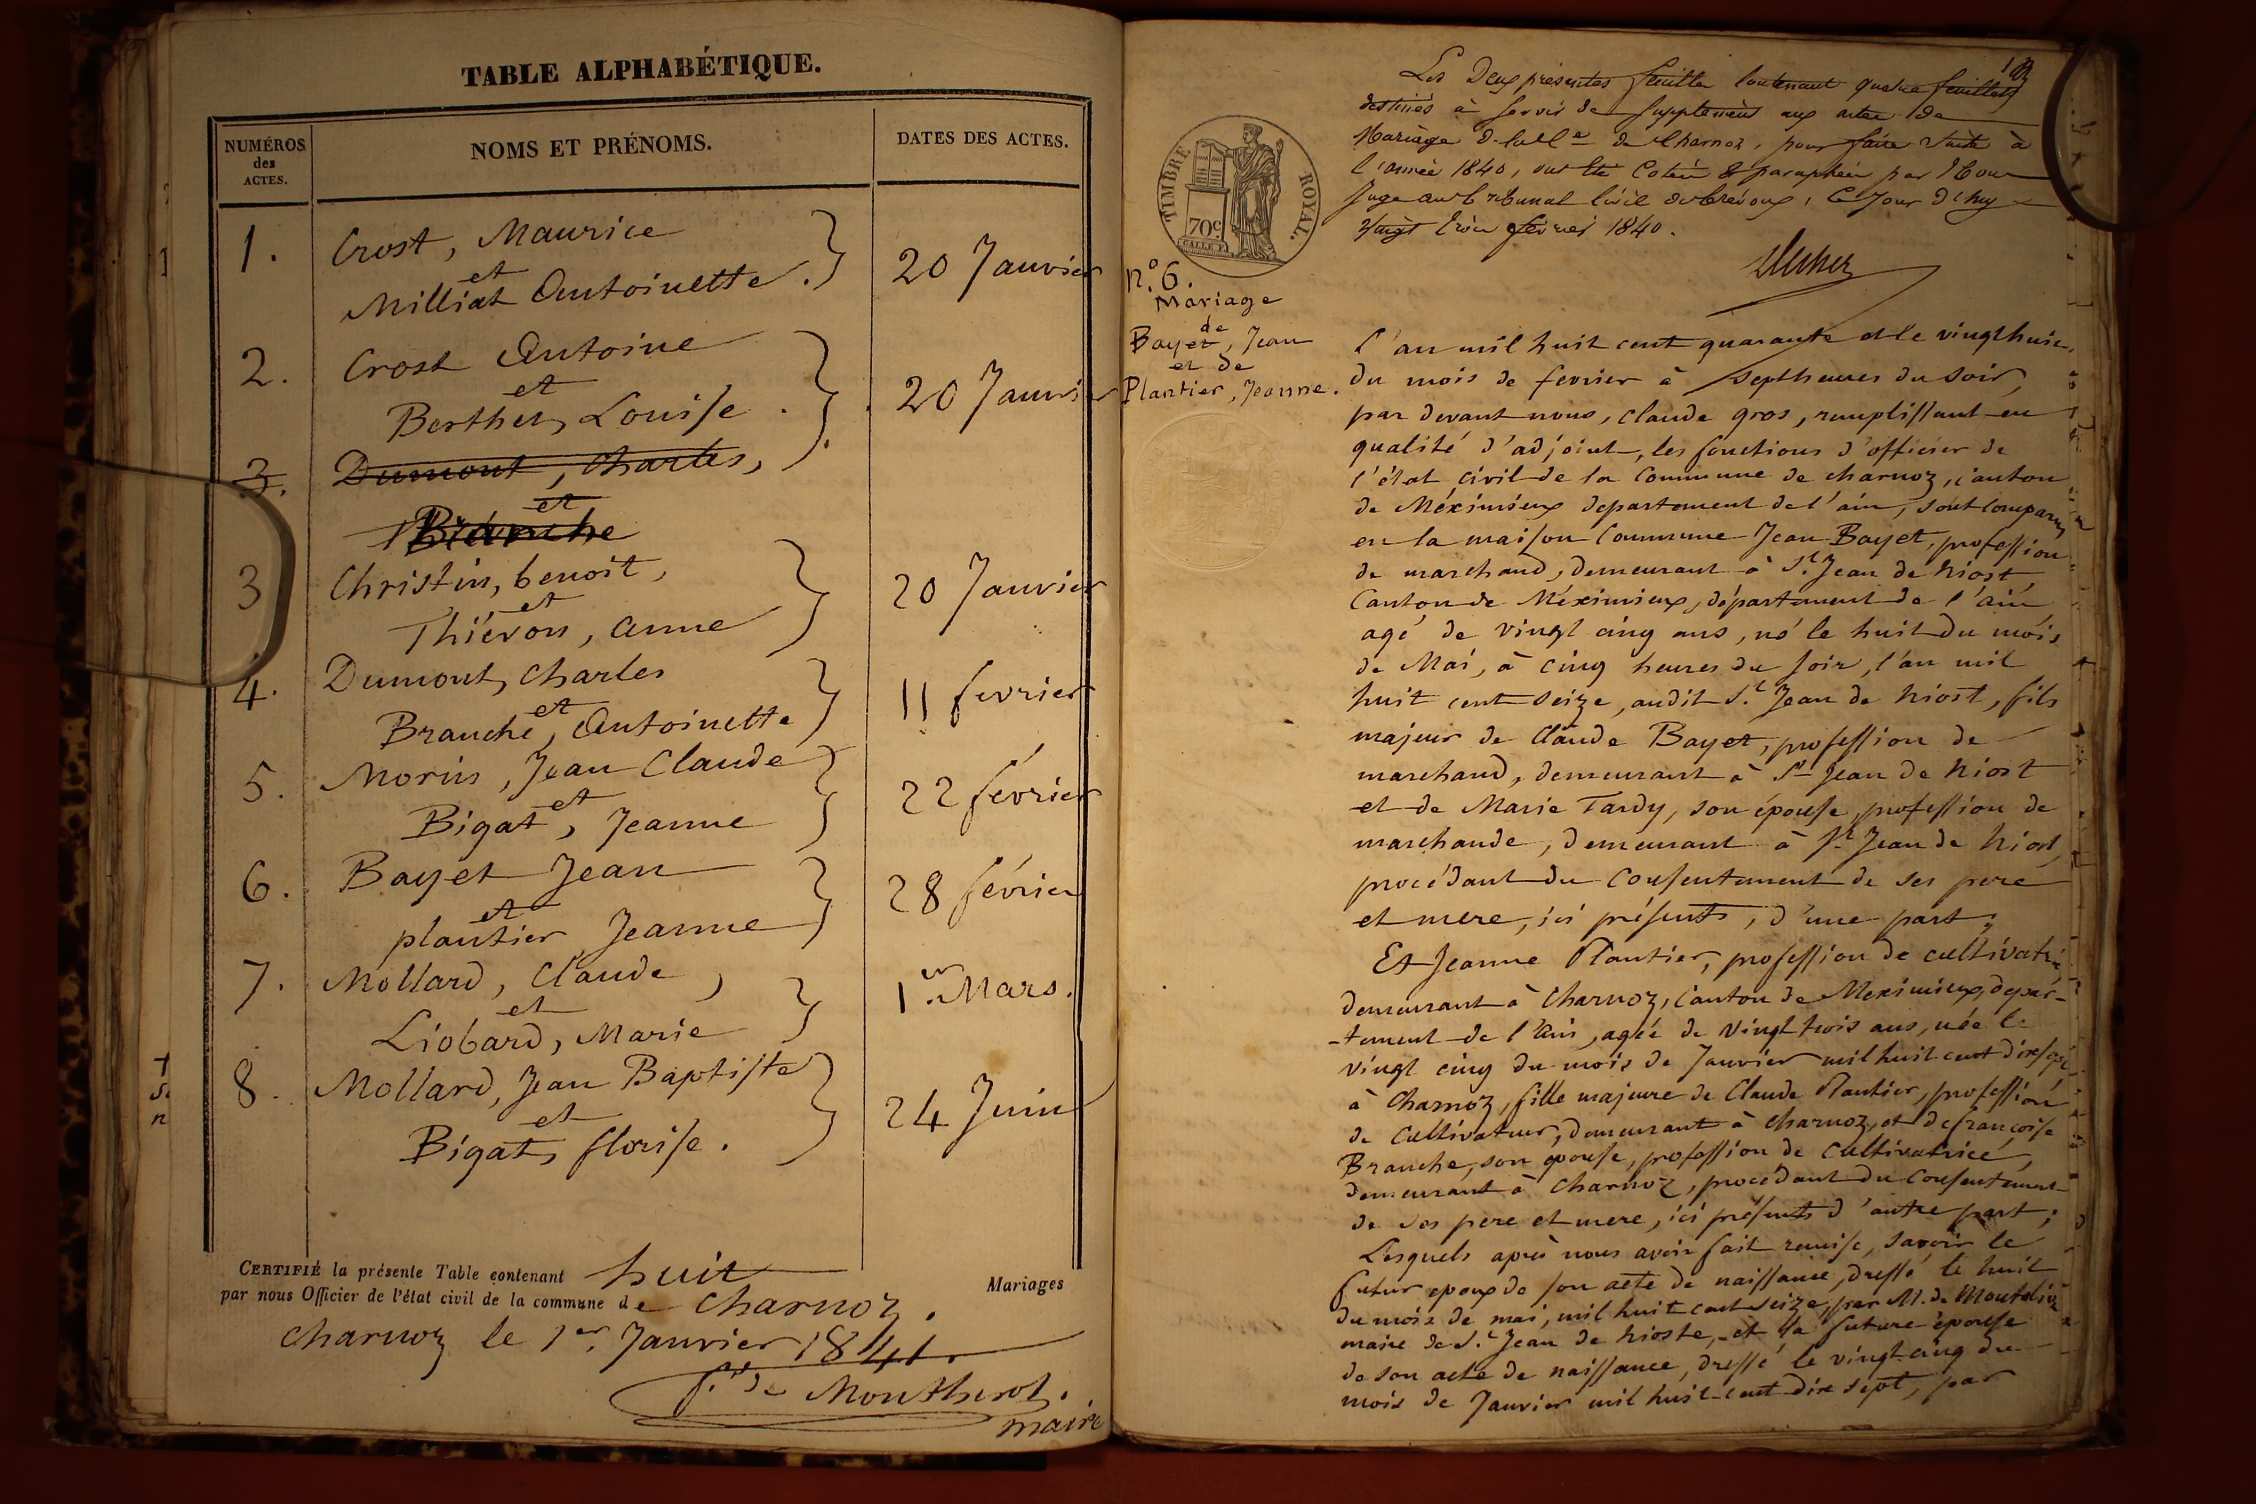 TABLE ALPHABÉTIQUE.
NUMÉROS
des
ACTES.
NOMS ET PRÉNOMS.
DATES DES ACTES.
1. Crost, Maurice
et
Milliat Antoinette. 20 Janvier
2. Crost Antoine
et
Berthet, Louise. 20 Janvier
3. Dumont, Charles,
et
Branche
3 Christin, benoit,
et
Thiévon, anne 20 Janvier
4. Dumont, Charles
et
Branche, Antoinette 11 fevrier
5. Morin, Jean Claude
et
Bigat, Jeanne 22 février
6. Bayet Jean
et
plantier Jeanne 28 février
7. Mollard, Claude,
et
Liobard, Marie 1.er Mars.
8. Mollard, Jean Baptiste
et
Bigat, florise. 24 Juin
CERTIFIÉ la présente Table contenant huit Mariages
par nous Officier de l'état civil de la commune de Charnoz.
Charnoz le 1er. Janvier 1841.
de Montherot.
maire
TIMBRE ROYAL.
70c
Les Deux présentes feuilles contenant quatre feuillets
destinés à servir de supplément aux actes de
Mariage de la Ce de Charnoz, pour faire suite à
l'année 1840, ont été Cotés & paraphés par Nous
Juge au tribunal Civil de Trévoux, Ce Jour d'huy
Vingt trois février 1840.
n.o 6.
Mariage
de
Bayet, Jean
et de
Plantier, Jeanne.
l'an mil huit cent quarante et le vingthuit
du mois de fevrier à septheures du soir,
par devant nous, Claude gros, remplissant en
qualité d'adjoint, les fonctions d'officier de
l'état civil de la Commune de charnoz, canton
de Méximieux departement de l'ain, sont comparus
en la maison Commune Jean Bayet, profession
de marchand, demeurant à St. Jean de Niost,
Canton de Méximieux, département de l'ain
agé de vingt cinq ans, né le huit du mois
de Mai, à cinq heures du soir, l'an mil
huit cent seize, audit St. Jean de Niost, fils
majeur de Claude Bayet, profession de
marchand, demeurant à St Jean de Niost
et de Marie Tardy, son épouse, profession de
marchande, demeurant à St Jean de Niost,
procédant du Consentement de ses pere
et mere, ici présents, d'une part;
Et Jeanne Plantier, profession de cultivatrice
demeurant à Charnoz, Canton de Meximieux, depar-
-tement de l'Ain, agée de vingt trois ans, née le
vingt cinq du mois de Janvier mil huit cent dixsept
à Charnoz, fille majeure de Claude Plantier, profession
de Cultivateur, demeurant à Charnoz, et de françoise
Branche, son epouse, profession de Cultivatrice,
demeurant à Charnoz, procédant du Consentement
de ses pere et mere, ici présents d'autre part;
Lesquels après nous avoir fait remise, savoir le
futur epoux de son acte de naissance, dressé le huit
du mois de mai, mil huit cent seize, par M. de
maire de St. Jean de Nioste, et la future épouse
de son acte de naissance, dressé le vingt cinq du
mois de Janvier mil huit-cent dix sept, par